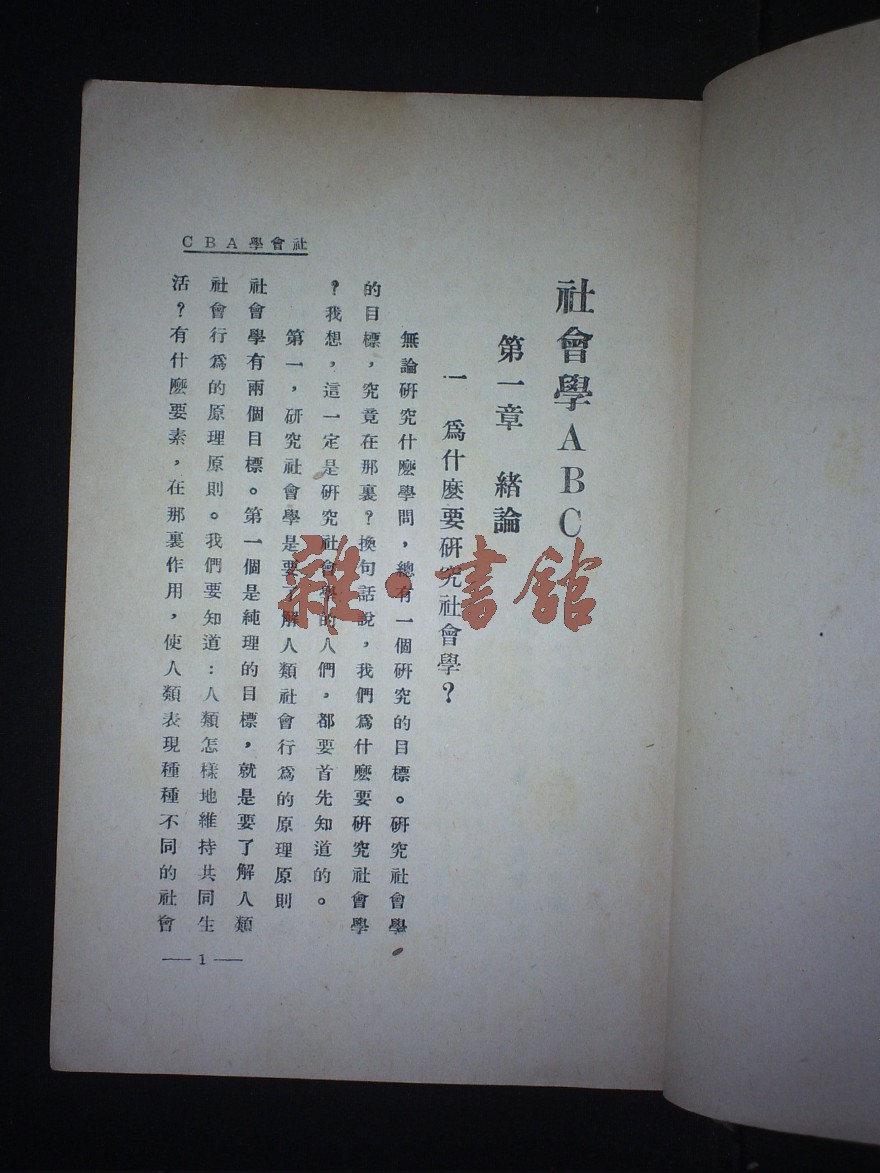 社會學ABC
社會學ABC
第一章　緒論
一　爲什麼要研究社會學？
無論研究什麼學問，總有一個研究的目標。研究社會學
的目標，究竟在那裏？換句話說，我們爲什麼要研究社會學
？我想，這一定是研究社會學的人們，都要首先知道的。
第一，研究社會學是要了解人類社會行爲的原理原則
社會學有兩個目標。第一個是純理的目標，就是要了解人類
社會行爲的原理原則。我們要知道：人類怎樣地維持共同生
活？有什麼要素，在那裏作用，使人類表現種種不同的社會
— 1 —
雜·書館